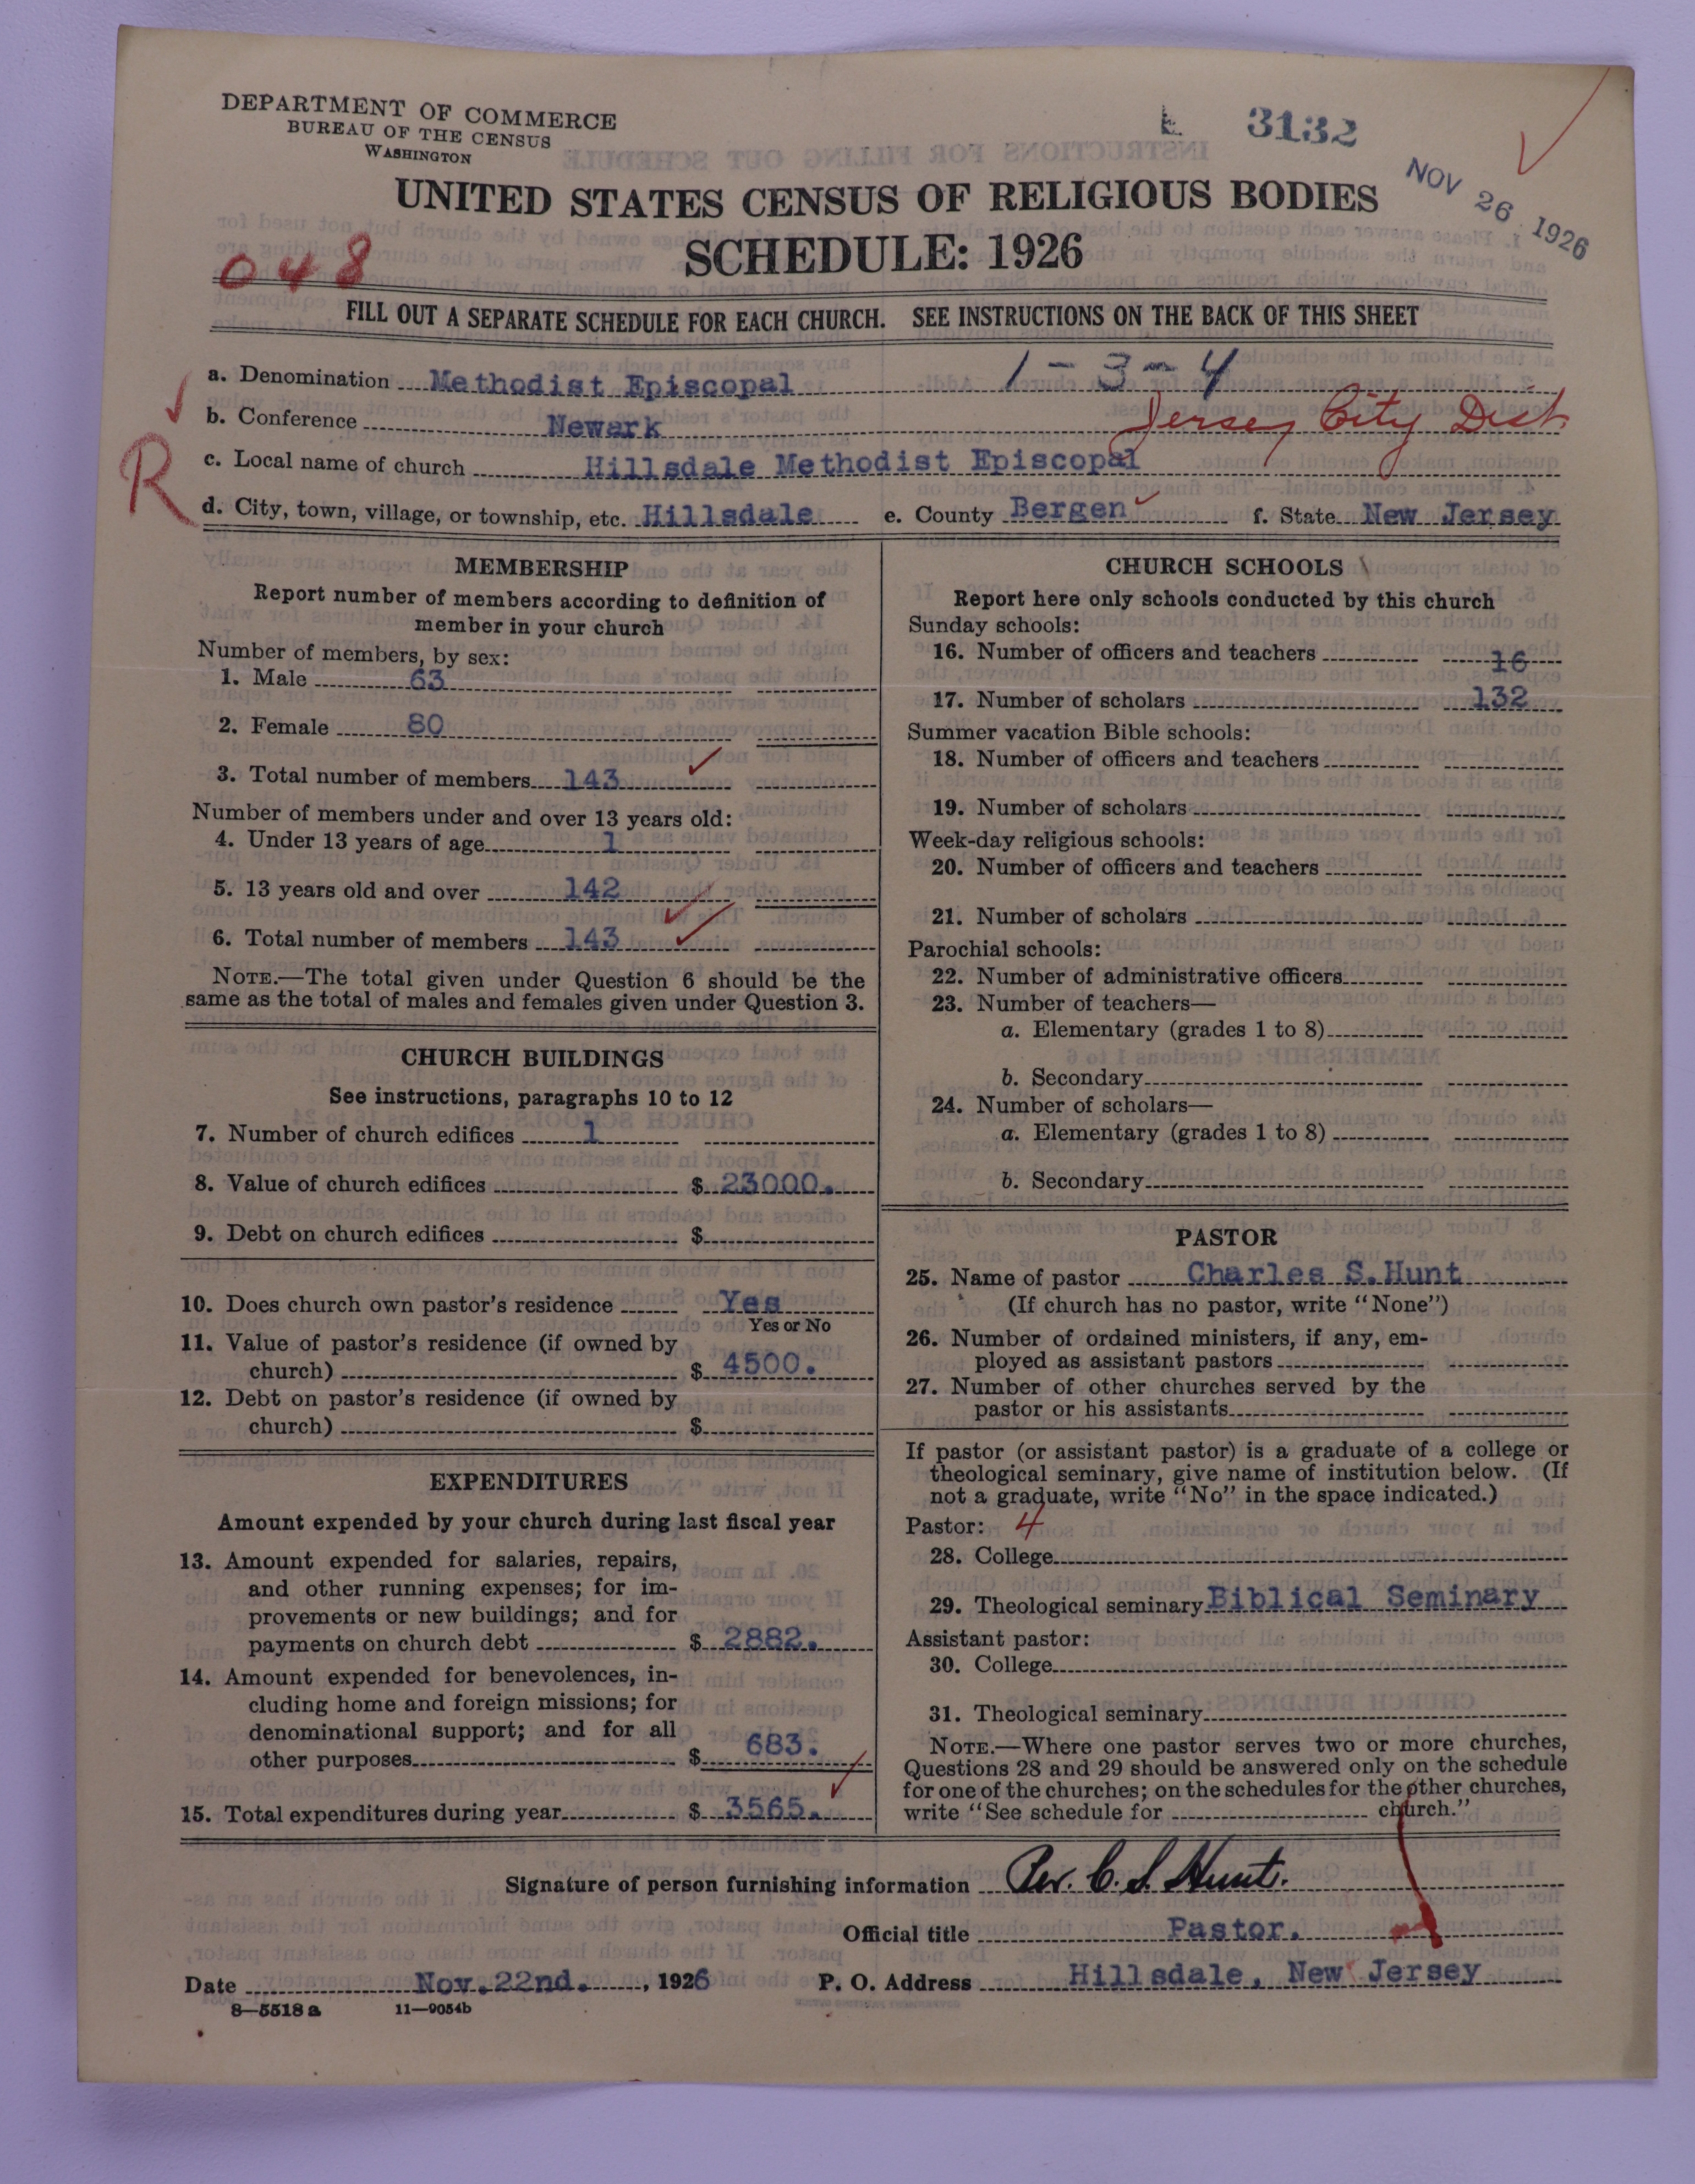 DEPARTMENT OF COMMERCE
BUREAU OF THE CENSUS
WASHINGTON
3132
NOV 26 1926
UNITED STATES CENSUS OF RELIGIOUS BODIES
SCHEDULE: 1926
048
FILL OUT A SEPARATE SCHEDULE FOR EACH CHURCH. SEE INSTRUCTIONS ON THE BACK OF THIS SHEET
1-3-4
a. Denomination Methodist Episcopal
b. Conference Newark Jersey City Dist
R
c. Local name of church Hillsdale Methodist Episcopal
d. City, town, village, or township, etc. Hillsdale e. County Bergen f. State New Jersey
MEMBERSHIP
Report number of members according to definition of
member in your church
Number of members, by sex:
1. Male 63
2. Female 80
3. Total number of members 143
Number of members under and over 13 years old:
4. Under 13 years of age 1
5. 13 years old and over 142
6. Total number of members 143
NOTE.—The total given under Question 6 should be the
same as the total of males and females given under Question 3.
CHURCH BUILDINGS
See instructions, paragraphs 10 to 12
7. Number of church edifices 1
8. Value of church edifices $ 23000.
9. Debt on church edifices $
10. Does church own pastor's residence Yes
Yes or No
11. Value of pastor's residence (if owned by
church) $ 4500.
12. Debt on pastor's residence (if owned by
church) $
EXPENDITURES
Amount expended by your church during last fiscal year
13. Amount expended for salaries, repairs,
and other running expenses; for im-
provements or new buildings; and for
payments on church debt $ 2882.
14. Amount expended for benevolences, in-
cluding home and foreign missions; for
denominational support; and for all
other purposes $ 683.
15. Total expenditures during year $ 3565.
CHURCH SCHOOLS
Report here only schools conducted by this church
Sunday schools:
16. Number of officers and teachers 16
17. Number of scholars 132
Summer vacation Bible schools:
18. Number of officers and teachers
19. Number of scholars
Week-day religious schools:
20. Number of officers and teachers
21. Number of scholars
Parochial schools:
22. Number of administrative officers
23. Number of teachers—
a. Elementary (grades 1 to 8)
b. Secondary
24. Number of scholars—
a. Elementary (grades 1 to 8)
b. Secondary
PASTOR
25. Name of pastor Charles S. Hunt
(If church has no pastor, write "None")
26. Number of ordained ministers, if any, em-
ployed as assistant pastors
27. Number of other churches served by the
pastor or his assistants
If pastor (or assistant pastor) is a graduate of a college or
theological seminary, give name of institution below. (If
not a graduate, write "No" in the space indicated.)
Pastor: 4
28. College
29. Theological seminary Biblical Seminary
Assistant pastor:
30. College
31. Theological seminary
NOTE.—Where one pastor serves two or more churches,
Questions 28 and 29 should be answered only on the schedule
for one of the churches; on the schedules for the other churches,
write "See schedule for church."
Signature of person furnishing information Rev. C. S. Hunt.
Official title Pastor.
Date Nov. 22nd. , 1926 P. O. Address Hillsdale, New Jersey
8—5518 a 11—9054b